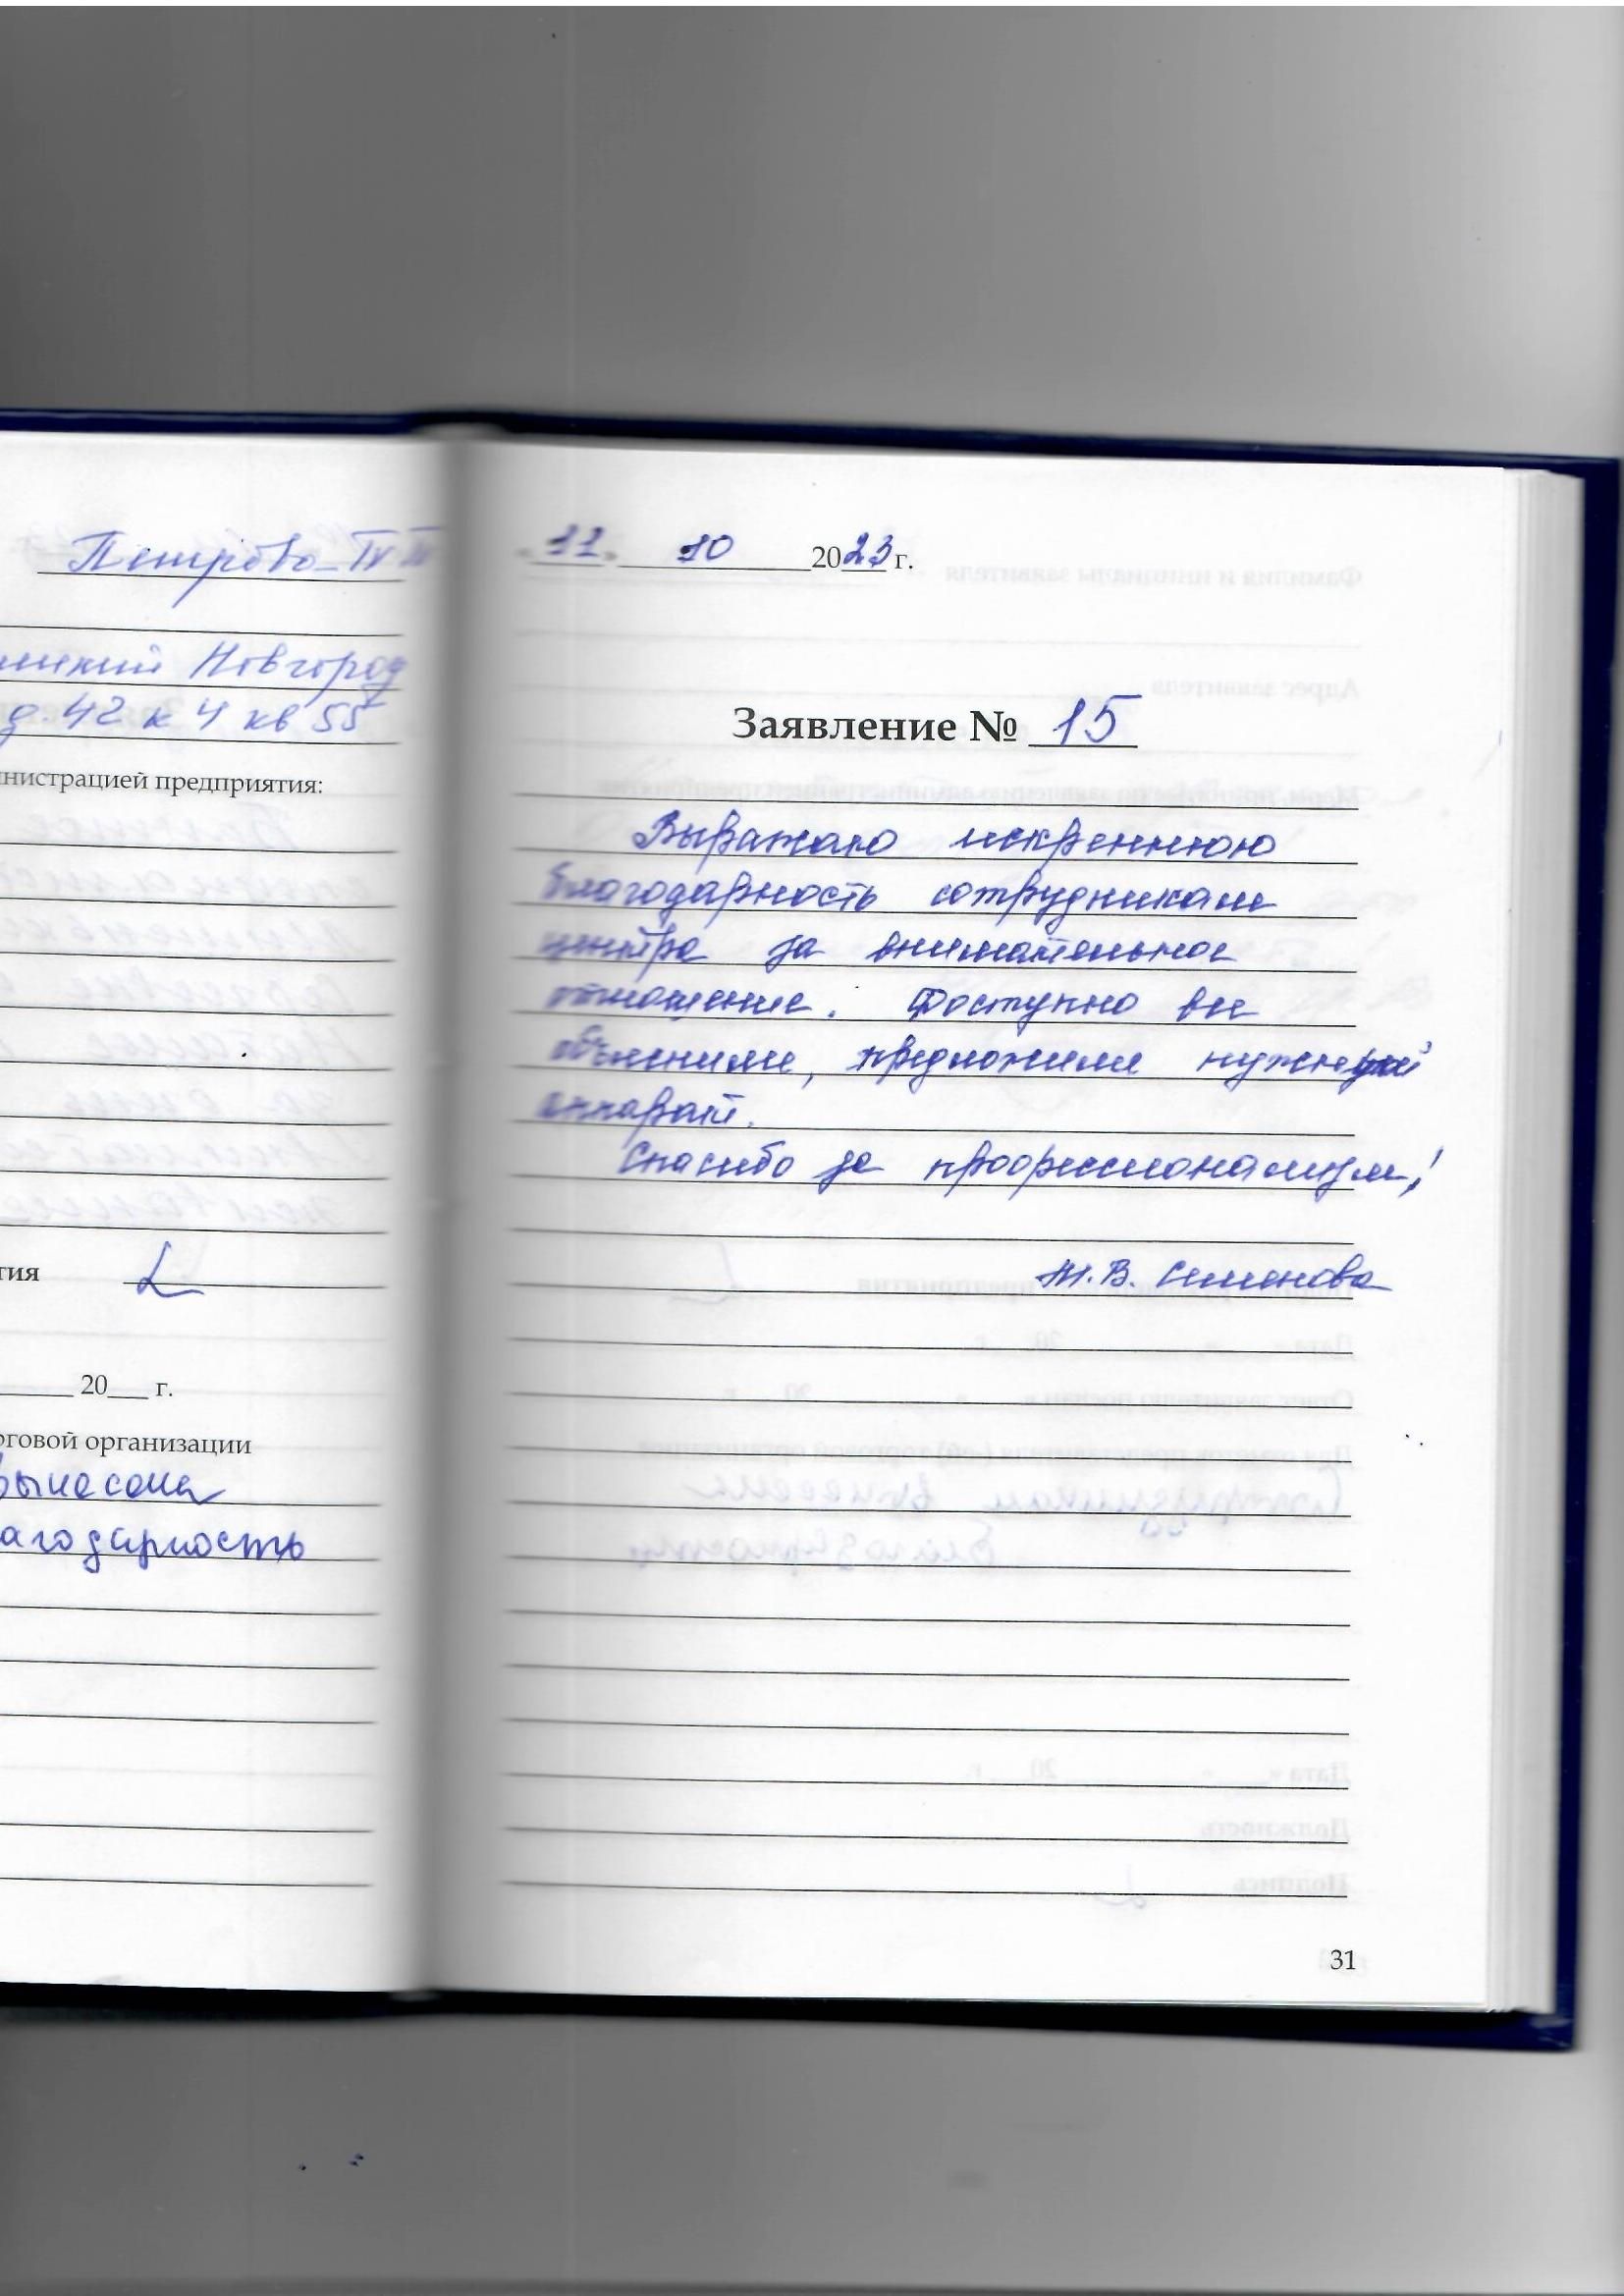 Петрова
Новгород
д. 42 к 4 кв 55
нистрацией предприятия:
тия
20 г.
рговой организации
вынесена
агодарность
11. 10 2023 г.
Заявление № 15
Выражаю искреннюю
благодарность сотрудникам
центра за внимательное
отношение. Доступно все
объяснили, предложили нужный
аппарат.
Спасибо за профессионализм!
Ж.В. Семенова
31